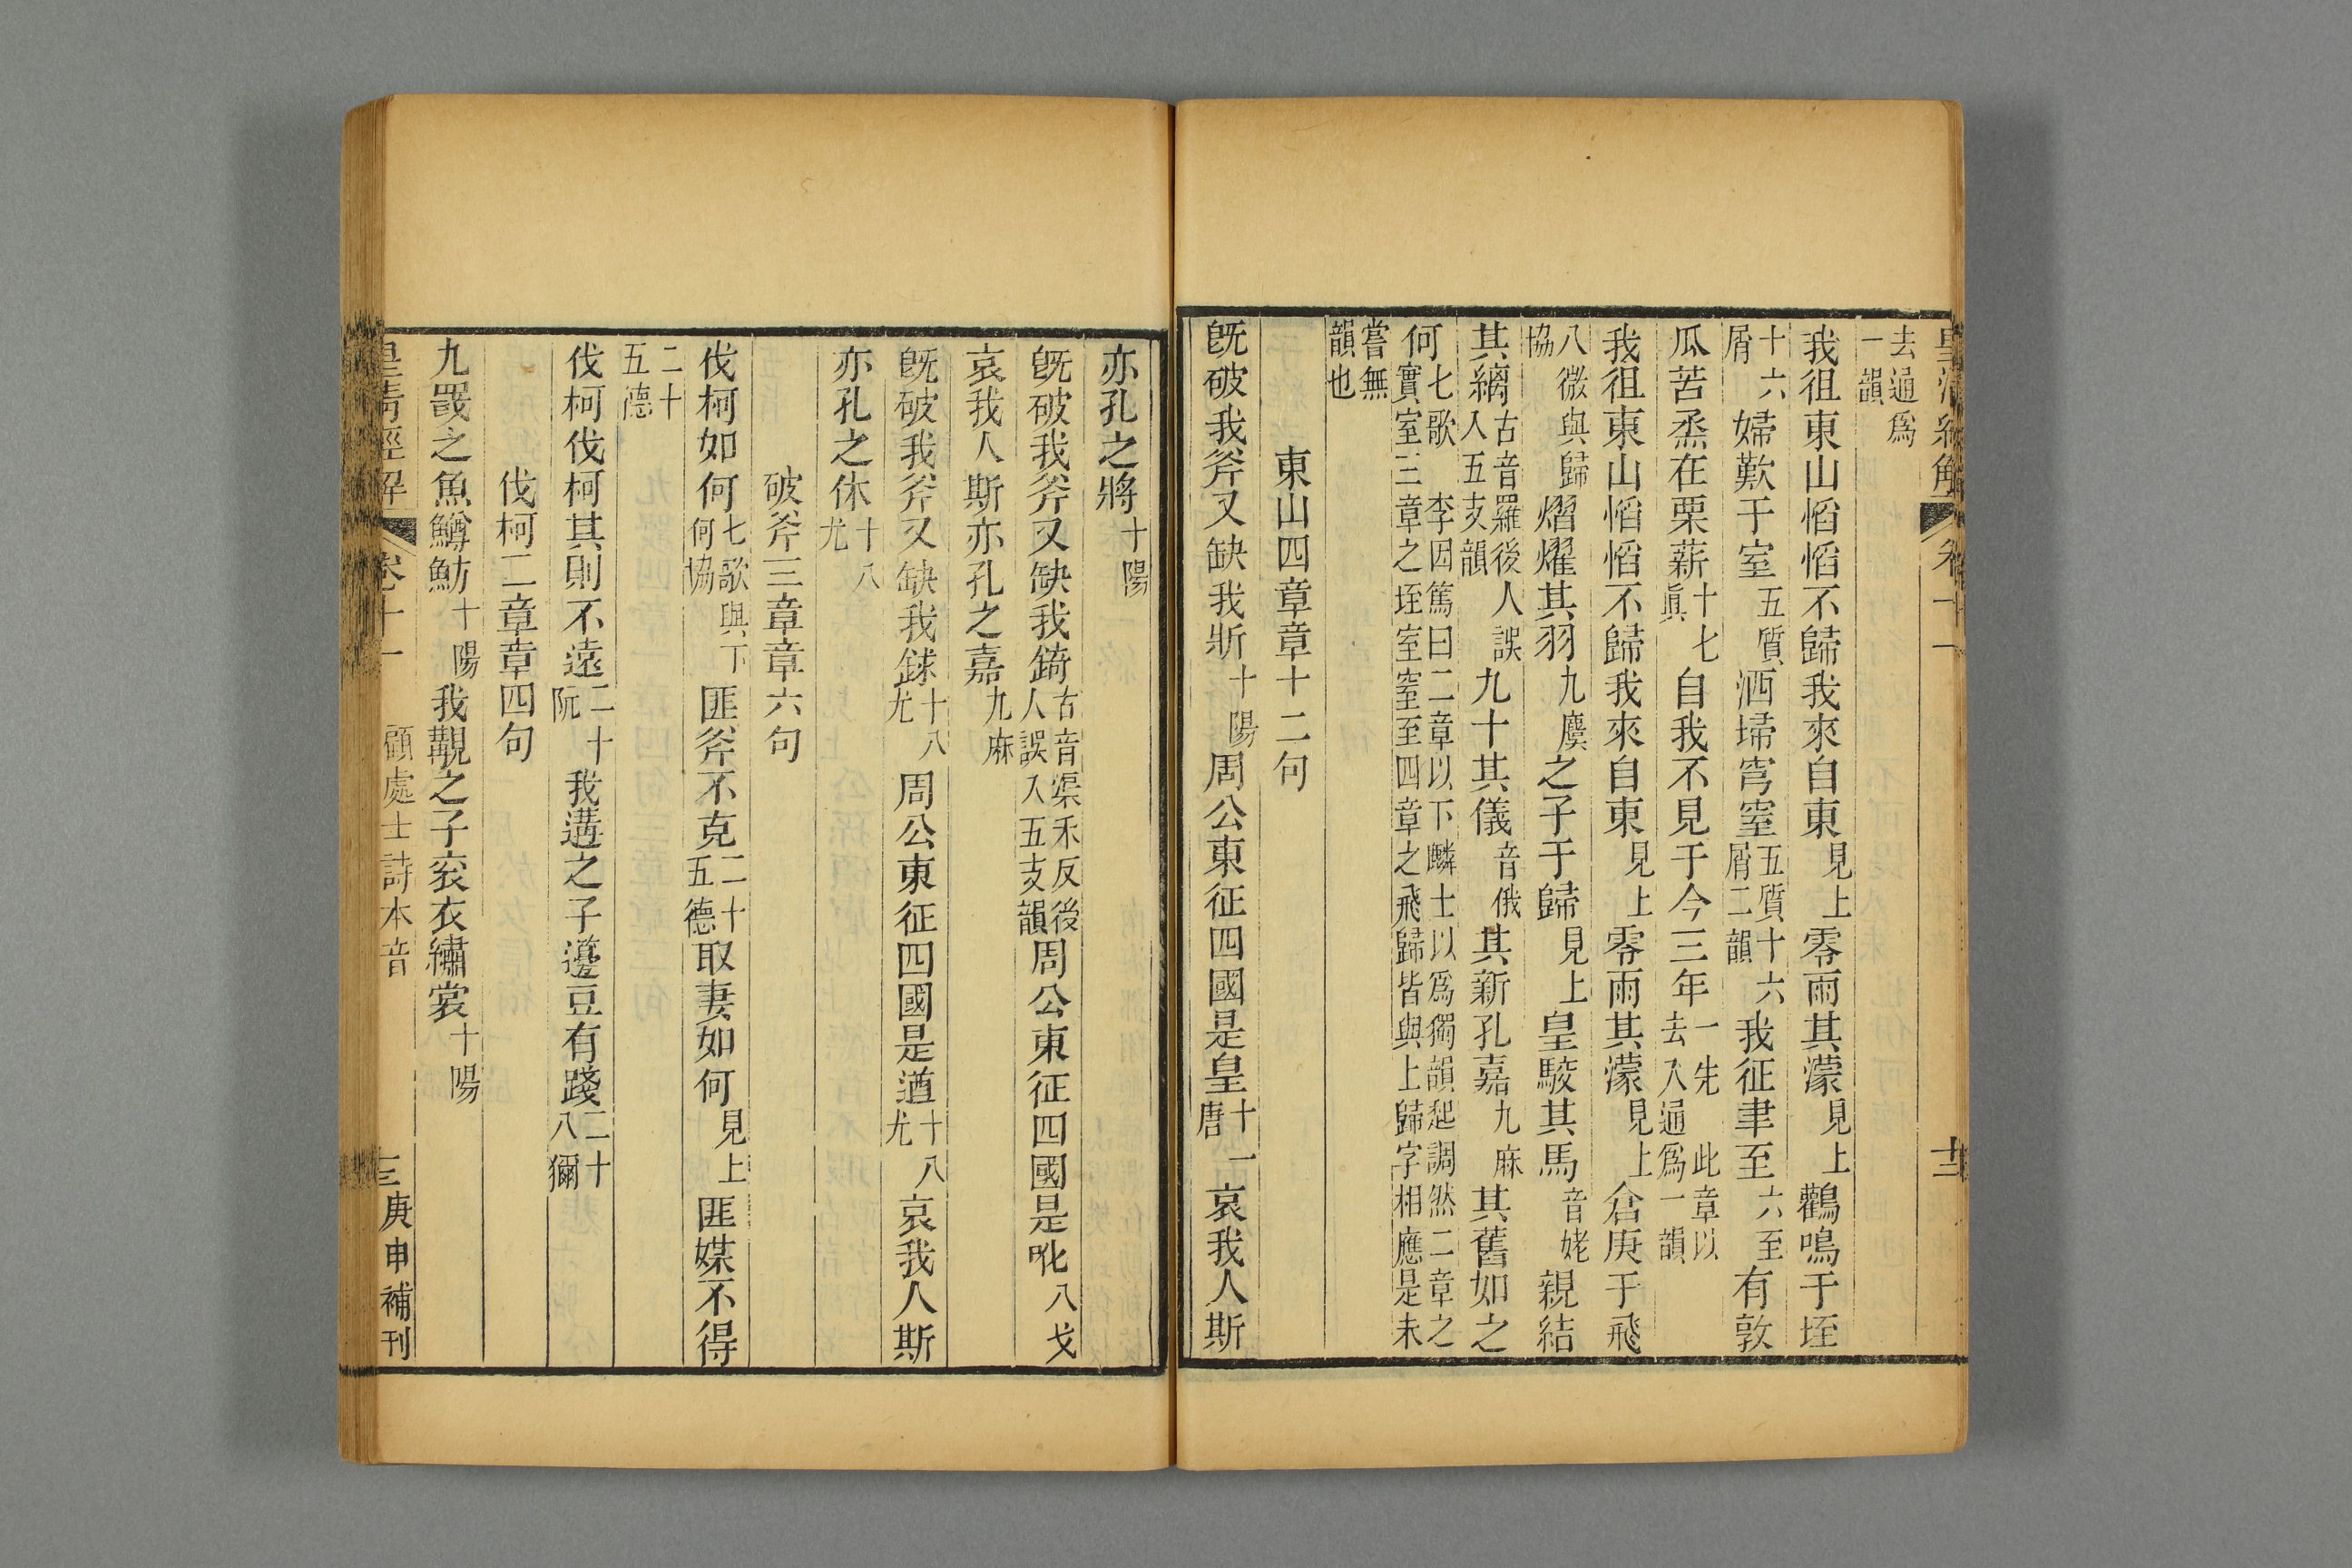 皇清經解 卷十一 十三
去通爲一韻
我徂東山慆慆不歸我來自東見上零雨其濛見上鸛鳴于垤
十六屑婦歎于室五質洒埽穹窒五質十六屑二韻我征聿至六至有敦
瓜苦烝在栗薪十七眞自我不見于今三年一先 此章以去入通爲一韻
我徂東山慆慆不歸我來自東見上零雨其濛見上倉庚于飛
八微與歸協熠燿其羽九麌之子于歸見上皇駁其馬音姥親結
其縭古音羅後人誤入五支韻九十其儀音俄其新孔嘉九麻其舊如之
何七歌 李因篤曰二章以下麟士以爲獨韻起調然二章之實室三章之垤室窒至四章之飛歸皆與上歸字相應是未
嘗無韻也
東山四章章十二句
旣破我斧又缺我斨十陽周公東征四國是皇十一唐哀我人斯
亦孔之將十陽
旣破我斧又缺我錡古音渠禾反後人誤入五支韻周公東征四國是吪八戈
哀我人斯亦孔之嘉九麻
旣破我斧又缺我銶十八尤周公東征四國是遒十八尤哀我人斯
亦孔之休十八尤
破斧三章章六句
伐柯如何七歌與下何協匪斧不克二十五德取妻如何見上匪媒不得
二十五德
伐柯伐柯其則不遠二十阮我遘之子籩豆有踐二十八獮
伐柯二章章四句
九罭之魚鱒魴十陽我覯之子袞衣繡裳十陽
皇清經解 卷十一 顧處士詩本音 十三 庚申補刊